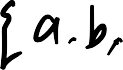 { a, b,